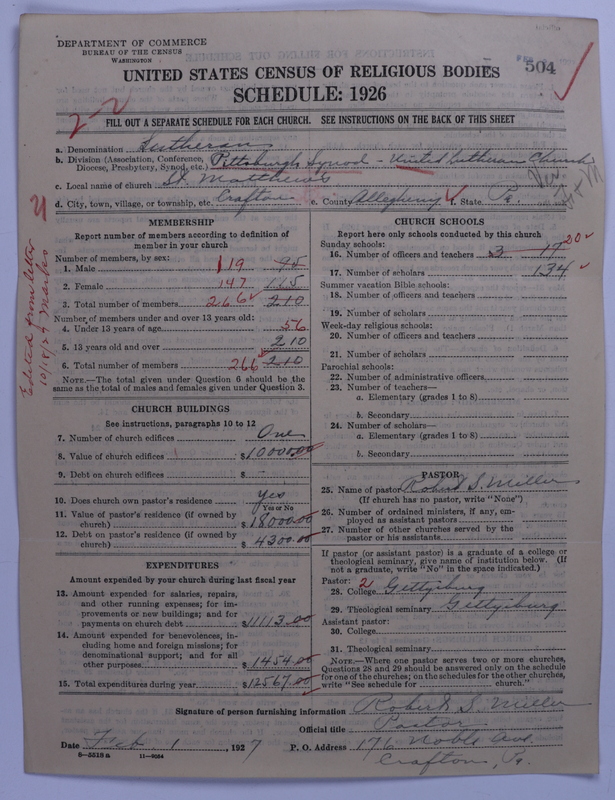 DEPARTMENT OF COMMERCE
BUREAU OF THE CENSUS
WASHINGTON
504
UNITED STATES CENSUS OF RELIGIOUS BODIES
SCHEDULE: 1926
2-2
FILL OUT A SEPARATE SCHEDULE FOR EACH CHURCH. SEE INSTRUCTIONS ON THE BACK OF THIS SHEET
a. Denomination Lutheran
b. Division (Association, Conference, Diocese, Presbytery, Synod, etc.) Pittsburgh Synod - United Lutheran Church
c. Local name of church St. Matthews
d. City, town, village, or township, etc. Crafton e. County Allegheny f. State Pa.
Edited from letter
10/18/27
MEMBERSHIP
Report number of members according to definition of
member in your church
Number of members, by sex:
1. Male 119 95
2. Female 147 115
3. Total number of members 266 210
Number of members under and over 13 years old:
4. Under 13 years of age 56
5. 13 years old and over 210
6. Total number of members 266 210
NOTE.—The total given under Question 6 should be the
same as the total of males and females given under Question 3.
CHURCH BUILDINGS
See instructions, paragraphs 10 to 12
7. Number of church edifices One
8. Value of church edifices $10000.00
9. Debt on church edifices $ -
10. Does church own pastor's residence Yes
Yes or No
11. Value of pastor's residence (if owned by
church) $18000.00
12. Debt on pastor's residence (if owned by
church) $4300.00
EXPENDITURES
Amount expended by your church during last fiscal year
13. Amount expended for salaries, repairs,
and other running expenses; for im-
provements or new buildings; and for
payments on church debt $11113.00
14. Amount expended for benevolences, in-
cluding home and foreign missions; for
denominational support; and for all
other purposes $1454.00
15. Total expenditures during year $12567.00
CHURCH SCHOOLS
Report here only schools conducted by this church
Sunday schools:
16. Number of officers and teachers 3 17 20
17. Number of scholars 134
Summer vacation Bible schools:
18. Number of officers and teachers
19. Number of scholars
Week-day religious schools:
20. Number of officers and teachers
21. Number of scholars
Parochial schools:
22. Number of administrative officers
23. Number of teachers—
a. Elementary (grades 1 to 8)
b. Secondary
24. Number of scholars—
a. Elementary (grades 1 to 8)
b. Secondary
PASTOR
25. Name of pastor Robert S. Miller
(If church has no pastor, write "None")
26. Number of ordained ministers, if any, em-
ployed as assistant pastors
27. Number of other churches served by the
pastor or his assistants
If pastor (or assistant pastor) is a graduate of a college or
theological seminary, give name of institution below. (If
not a graduate, write "No" in the space indicated.)
Pastor: 2
28. College Gettysburg
29. Theological seminary Gettysburg
Assistant pastor:
30. College
31. Theological seminary
NOTE.—Where one pastor serves two or more churches,
Questions 28 and 29 should be answered only on the schedule
for one of the churches; on the schedules for the other churches,
write "See schedule for church."
Signature of person furnishing information Robert S. Miller
Official title Pastor
Date Feb 1, 1927 P. O. Address 176 Noble Ave
8-5518 a 11-9084 Crafton, Pa.